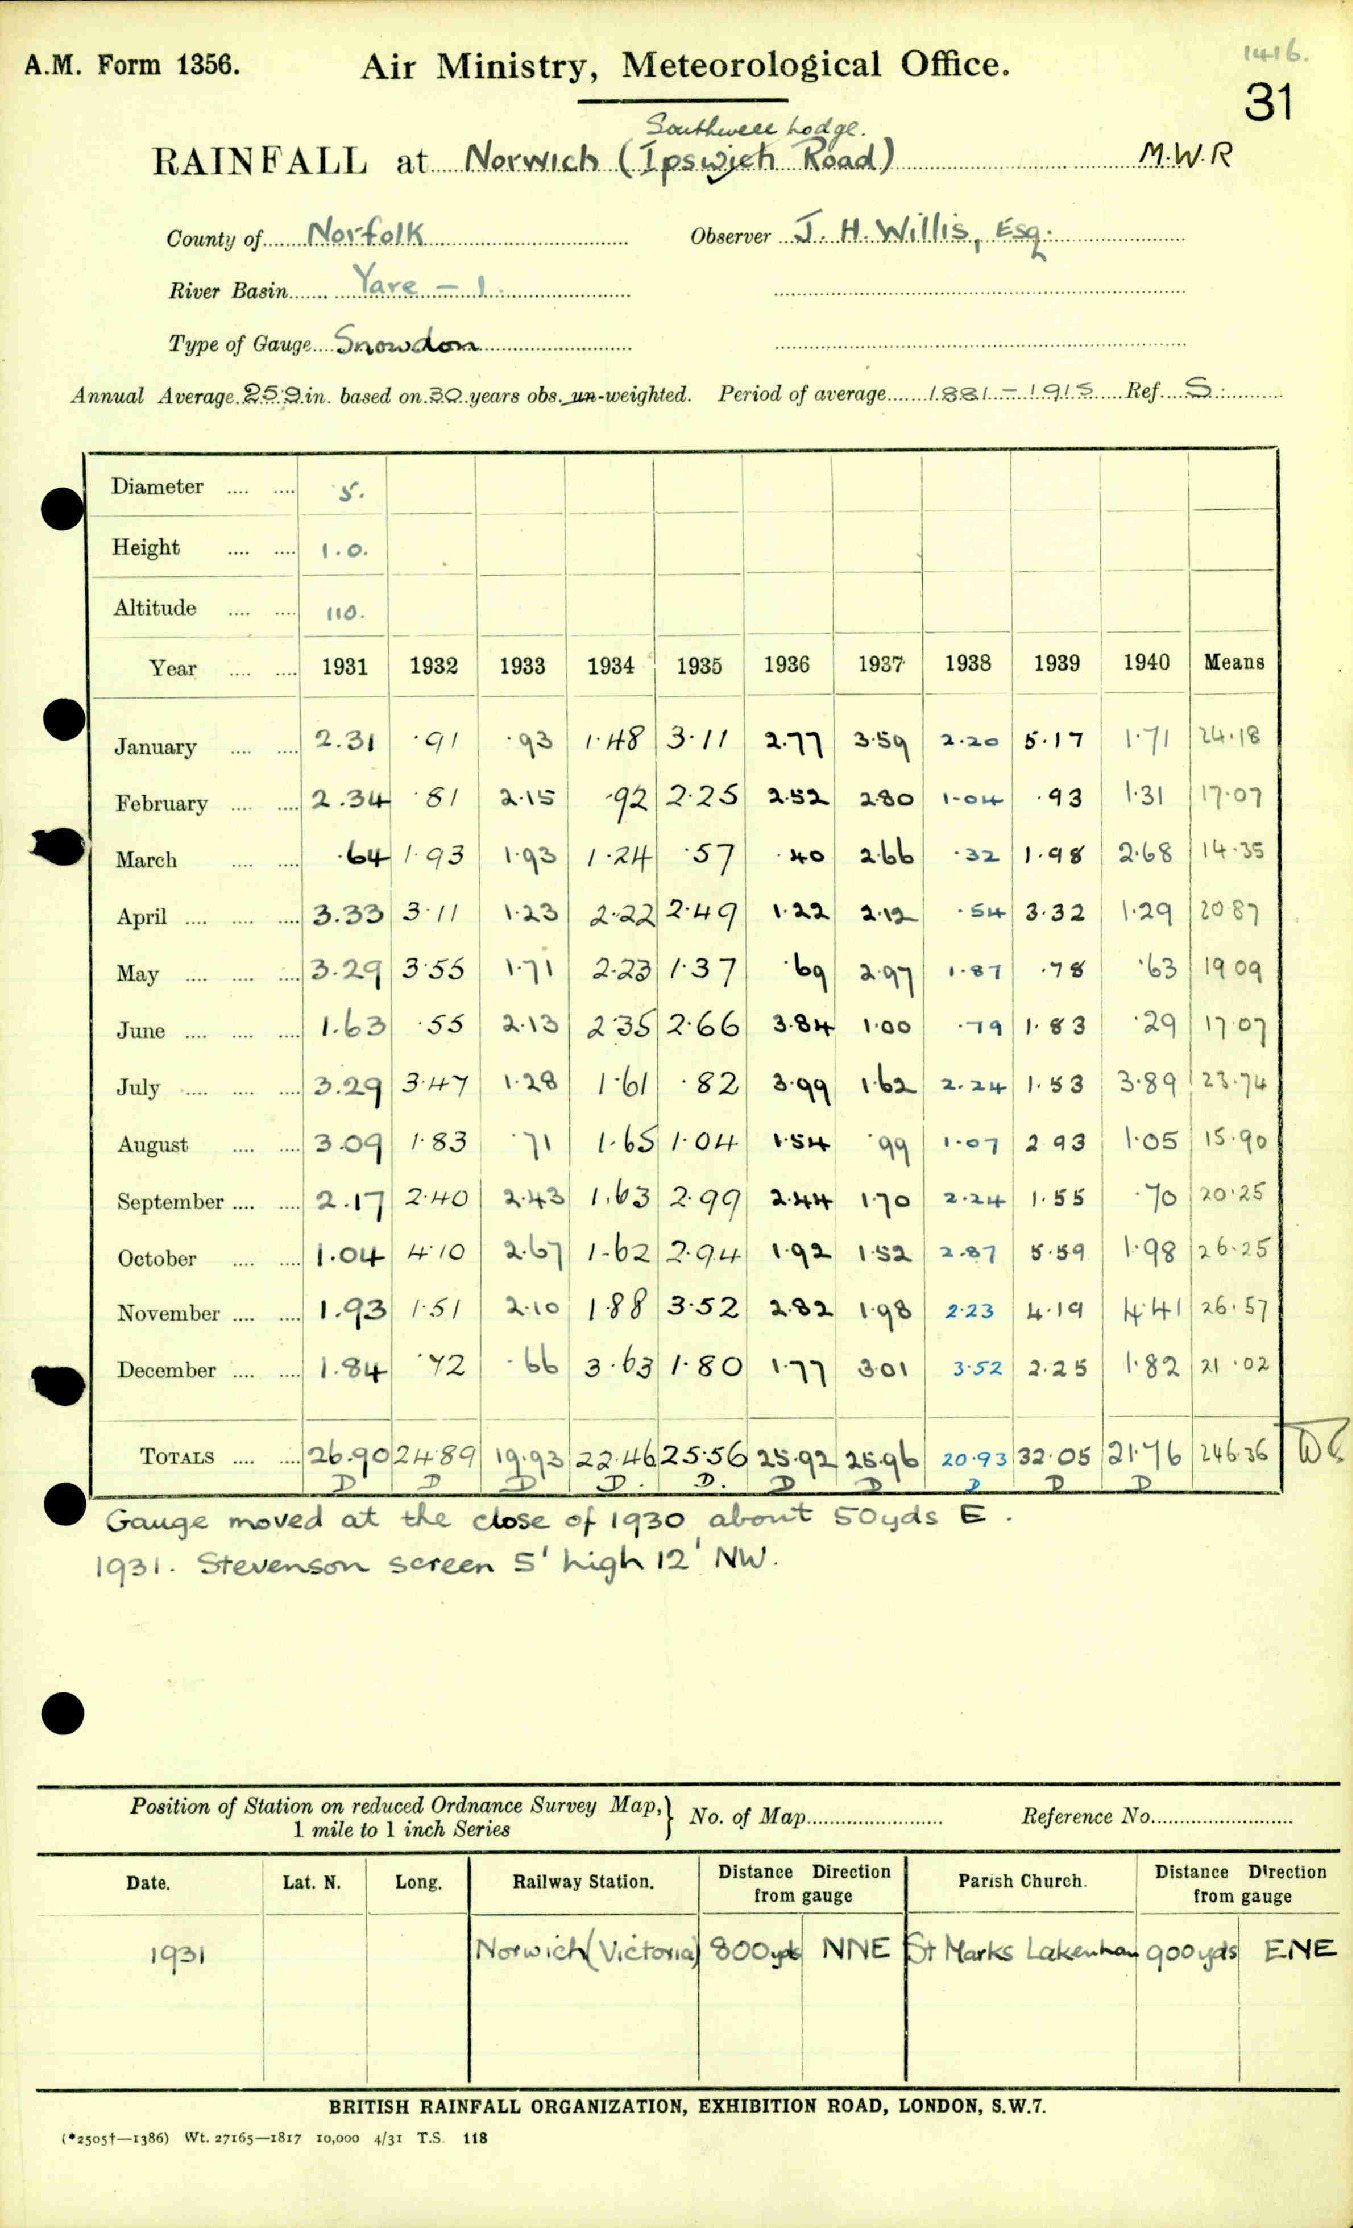 1416.
A.M. Form 1356.
Air Ministry, Meteorological Office.
31
Southwell Lodge.
RAINFALL at Norwich (Ipswich Road) M.W.R
County of Norfolk Observer J. H. Willis, Esq.
River Basin Yare - 1.
Type of Gauge Snowdon
Annual Average 25.9 in. based on 30 years obs. un-weighted. Period of average 1881-1915 Ref. S.
Diameter 5.
Height 1.0.
Altitude 110.
Year 1931 1932 1933 1934 1935 1936 1937 1938 1939 1940 Means
January 2.31 .91 .93 1.48 3.11 2.77 3.59 2.20 5.17 1.71 24.18
February 2.34 .81 2.15 .92 2.25 2.52 2.80 1.04 .93 1.31 17.07
March .64 1.93 1.93 1.24 .57 .40 2.66 .32 1.98 2.68 14.35
April 3.33 3.11 1.23 2.22 2.49 1.22 2.12 .54 3.32 1.29 20.87
May 3.29 3.55 1.71 2.23 1.37 .69 2.97 1.87 .78 .63 19.09
June 1.63 .55 2.13 2.35 2.66 3.84 1.00 .79 1.83 .29 17.07
July 3.29 3.47 1.28 1.61 .82 3.99 1.62 2.24 1.53 3.89 23.74
August 3.09 1.83 .71 1.65 1.04 1.54 .99 1.07 2.93 1.05 15.90
September 2.17 2.40 2.43 1.63 2.99 2.44 1.70 2.24 1.55 .70 20.25
October 1.04 4.10 2.67 1.62 2.94 1.92 1.52 2.87 5.59 1.98 26.25
November 1.93 1.51 2.10 1.88 3.52 2.82 1.98 2.23 4.19 4.41 26.57
December 1.84 .72 .66 3.63 1.80 1.77 3.01 3.52 2.25 1.82 21.02
TOTALS 26.90 24.89 19.93 22.46 25.56 25.92 25.96 20.93 32.05 21.76 246.36
D D D D. D. D D D D D
Gauge moved at the close of 1930 about 50yds E.
1931. Stevenson screen 5' high 12' NW.
Position of Station on reduced Ordnance Survey Map, 1 mile to 1 inch Series } No. of Map Reference No.
Date. Lat. N. Long. Railway Station. Distance Direction from gauge Parish Church. Distance Direction from gauge
1931 Norwich (Victoria) 800yds NNE St Marks Lakenham 900yds ENE
BRITISH RAINFALL ORGANIZATION, EXHIBITION ROAD, LONDON, S.W.7.
(*2505†—1386) Wt. 27165—1817 10,000 4/31 T.S. 118